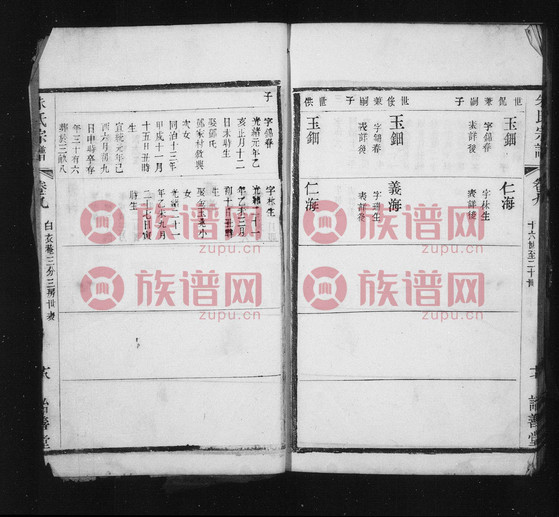 朱氏宗譜
卷九
十六世至二十世
詒善堂
世侃兼嗣子
玉鈿
字錫春
表詳後
仁海
字林生
表詳後
世俊兼嗣子
玉鈿
字錫春
表詳後
義海
表詳後
世供
玉鈿
仁海
子
字錫春
光緒元年乙
亥正月十二
日未時生
娶鄧氏
鄧家林敘興
次女
同治十三年
甲戌十一月
十五日丑時
生
宣統元年己
酉六月初九
日申時卒存
年三十有六
字林生
年乙未三月
初十日丑時
生
次女
光緒二十一
年乙未九月
二十七日寅
時生
朱氏宗譜
卷九
三分三房世表
詒善堂
族谱网
zupu.cn
族谱网
zupu.cn
族谱网
zupu.cn
族谱网
zupu.cn